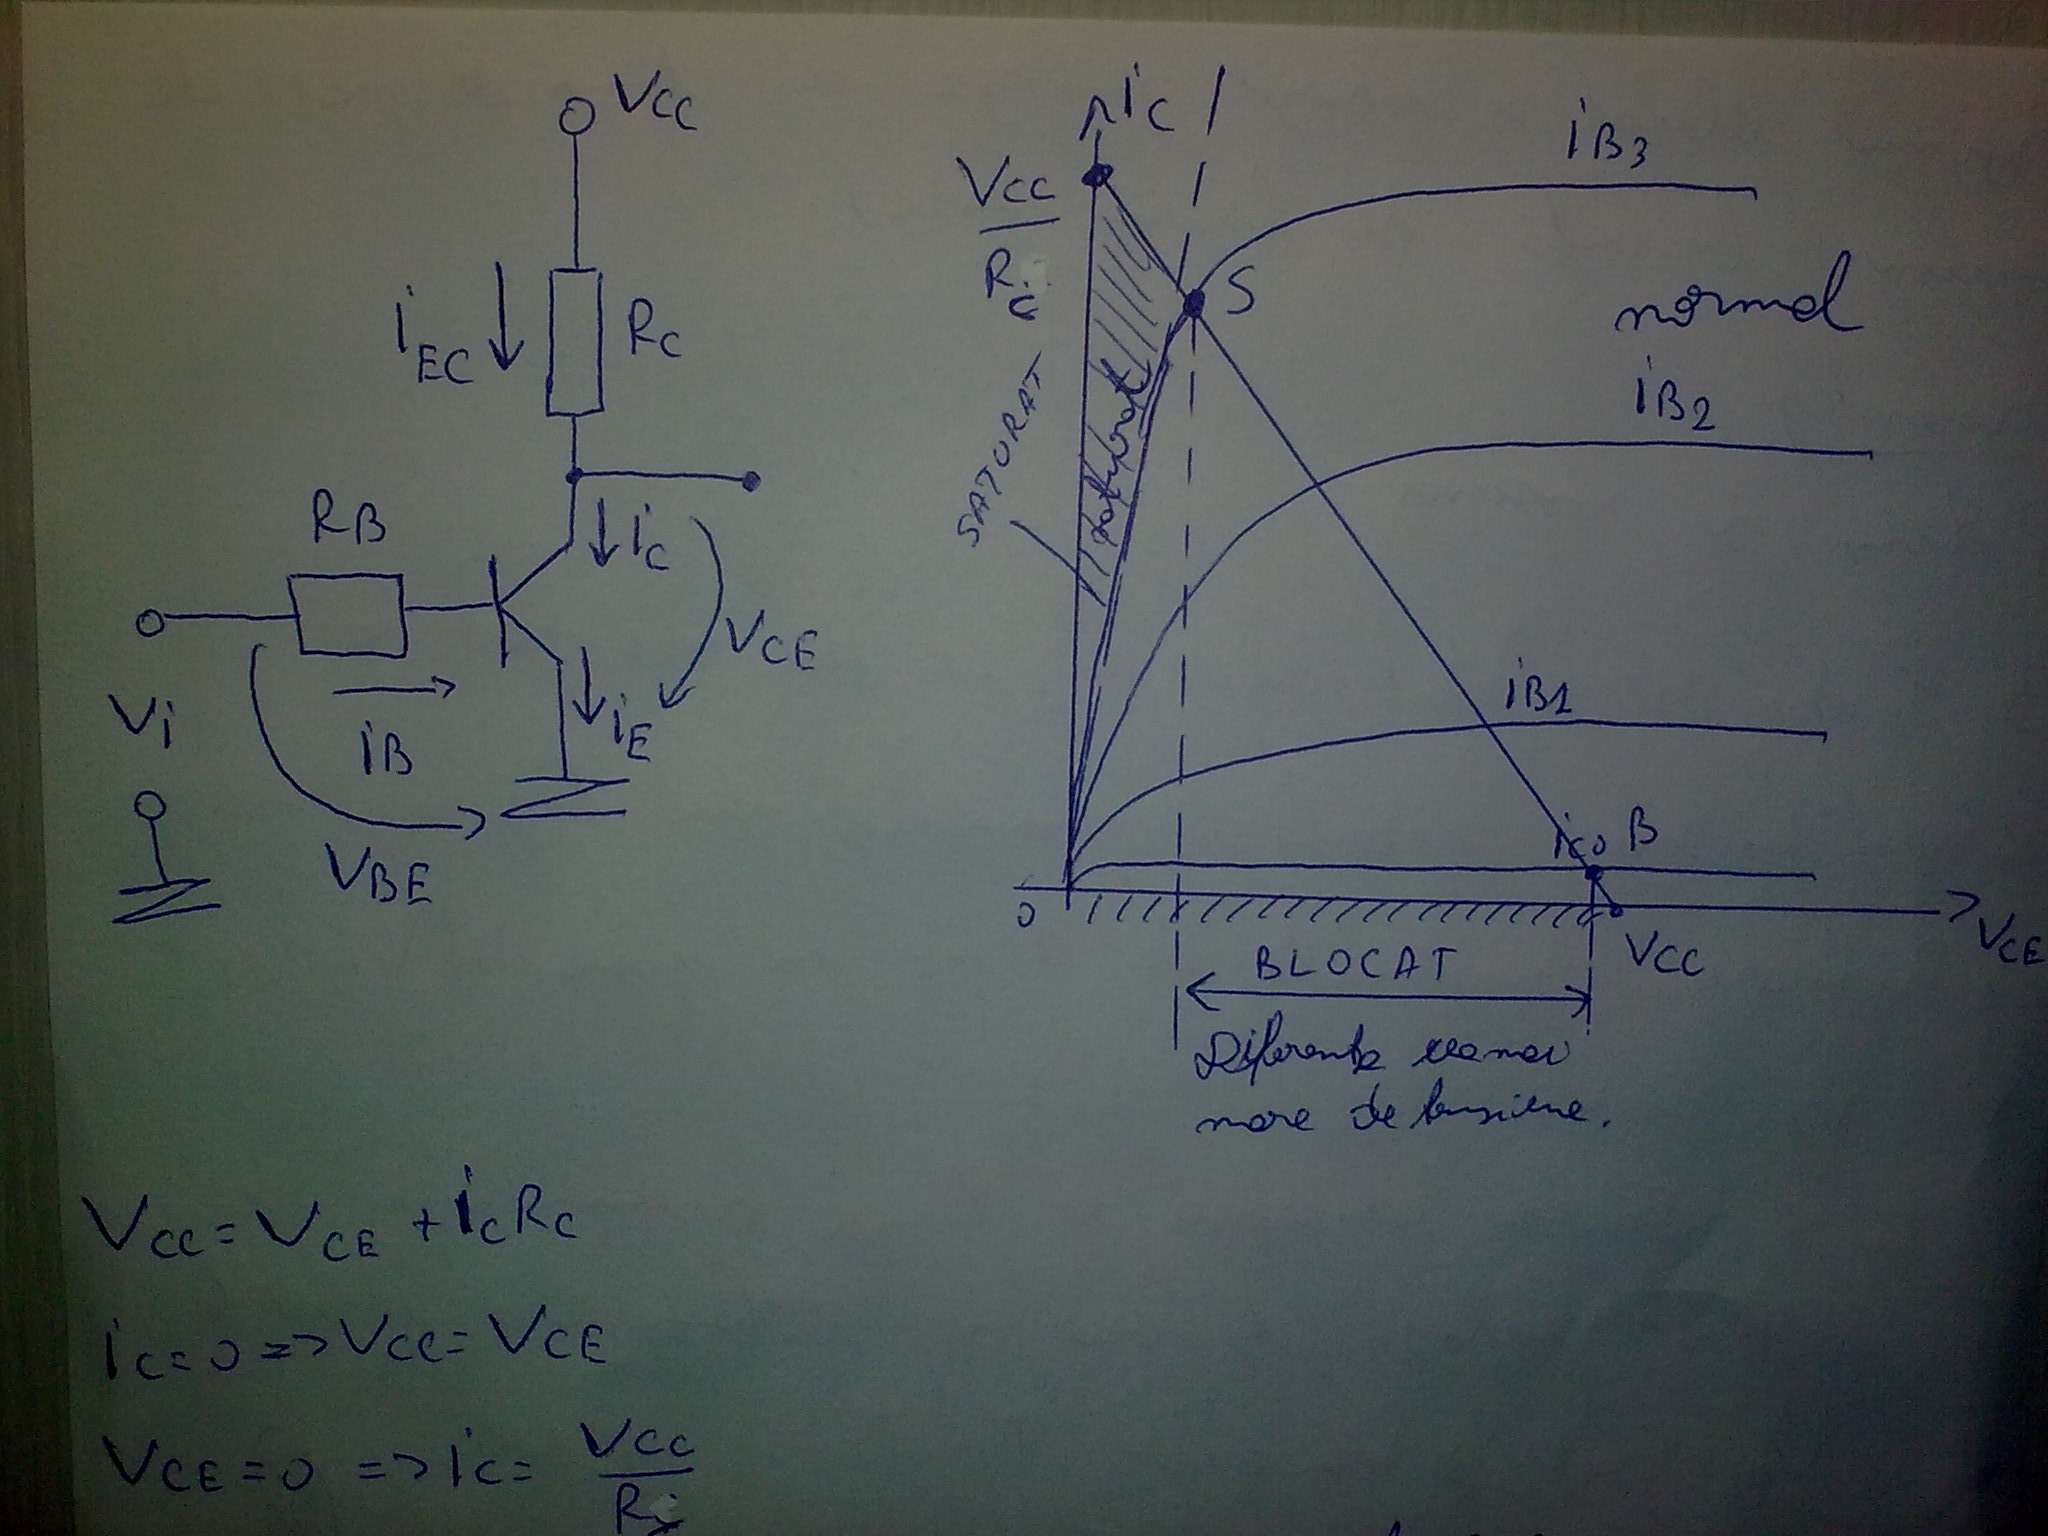 VCC
iEC
RC
RB
iC
VCE
Vi
iB
iE
VBE
iC
VCC
RC
SATURAT
saturat
S
iB3
normal
iB2
iB1
iC0 B
0
VCC
VCE
BLOCAT
Diferenta
mare de tensiune.
VCC = VCE + iCRC
iC = 0 => VCC = VCE
VCE = 0 => iC = VCC
R